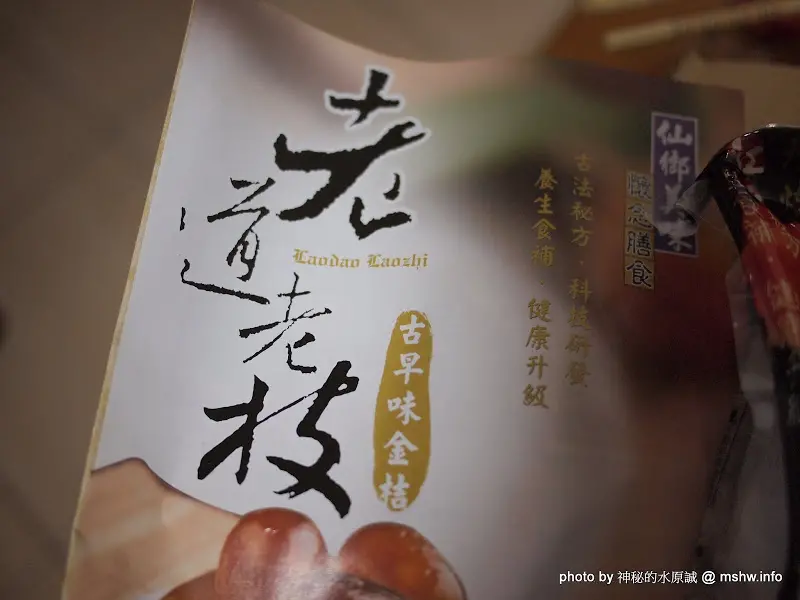 老道老枝
Laodao Laozhi
古早味金桔
仙鄉美味
懷念膳食
古法秘方．科技研發
養生食補．健康升級
photo by 神秘的水原誠 @ mshw.info